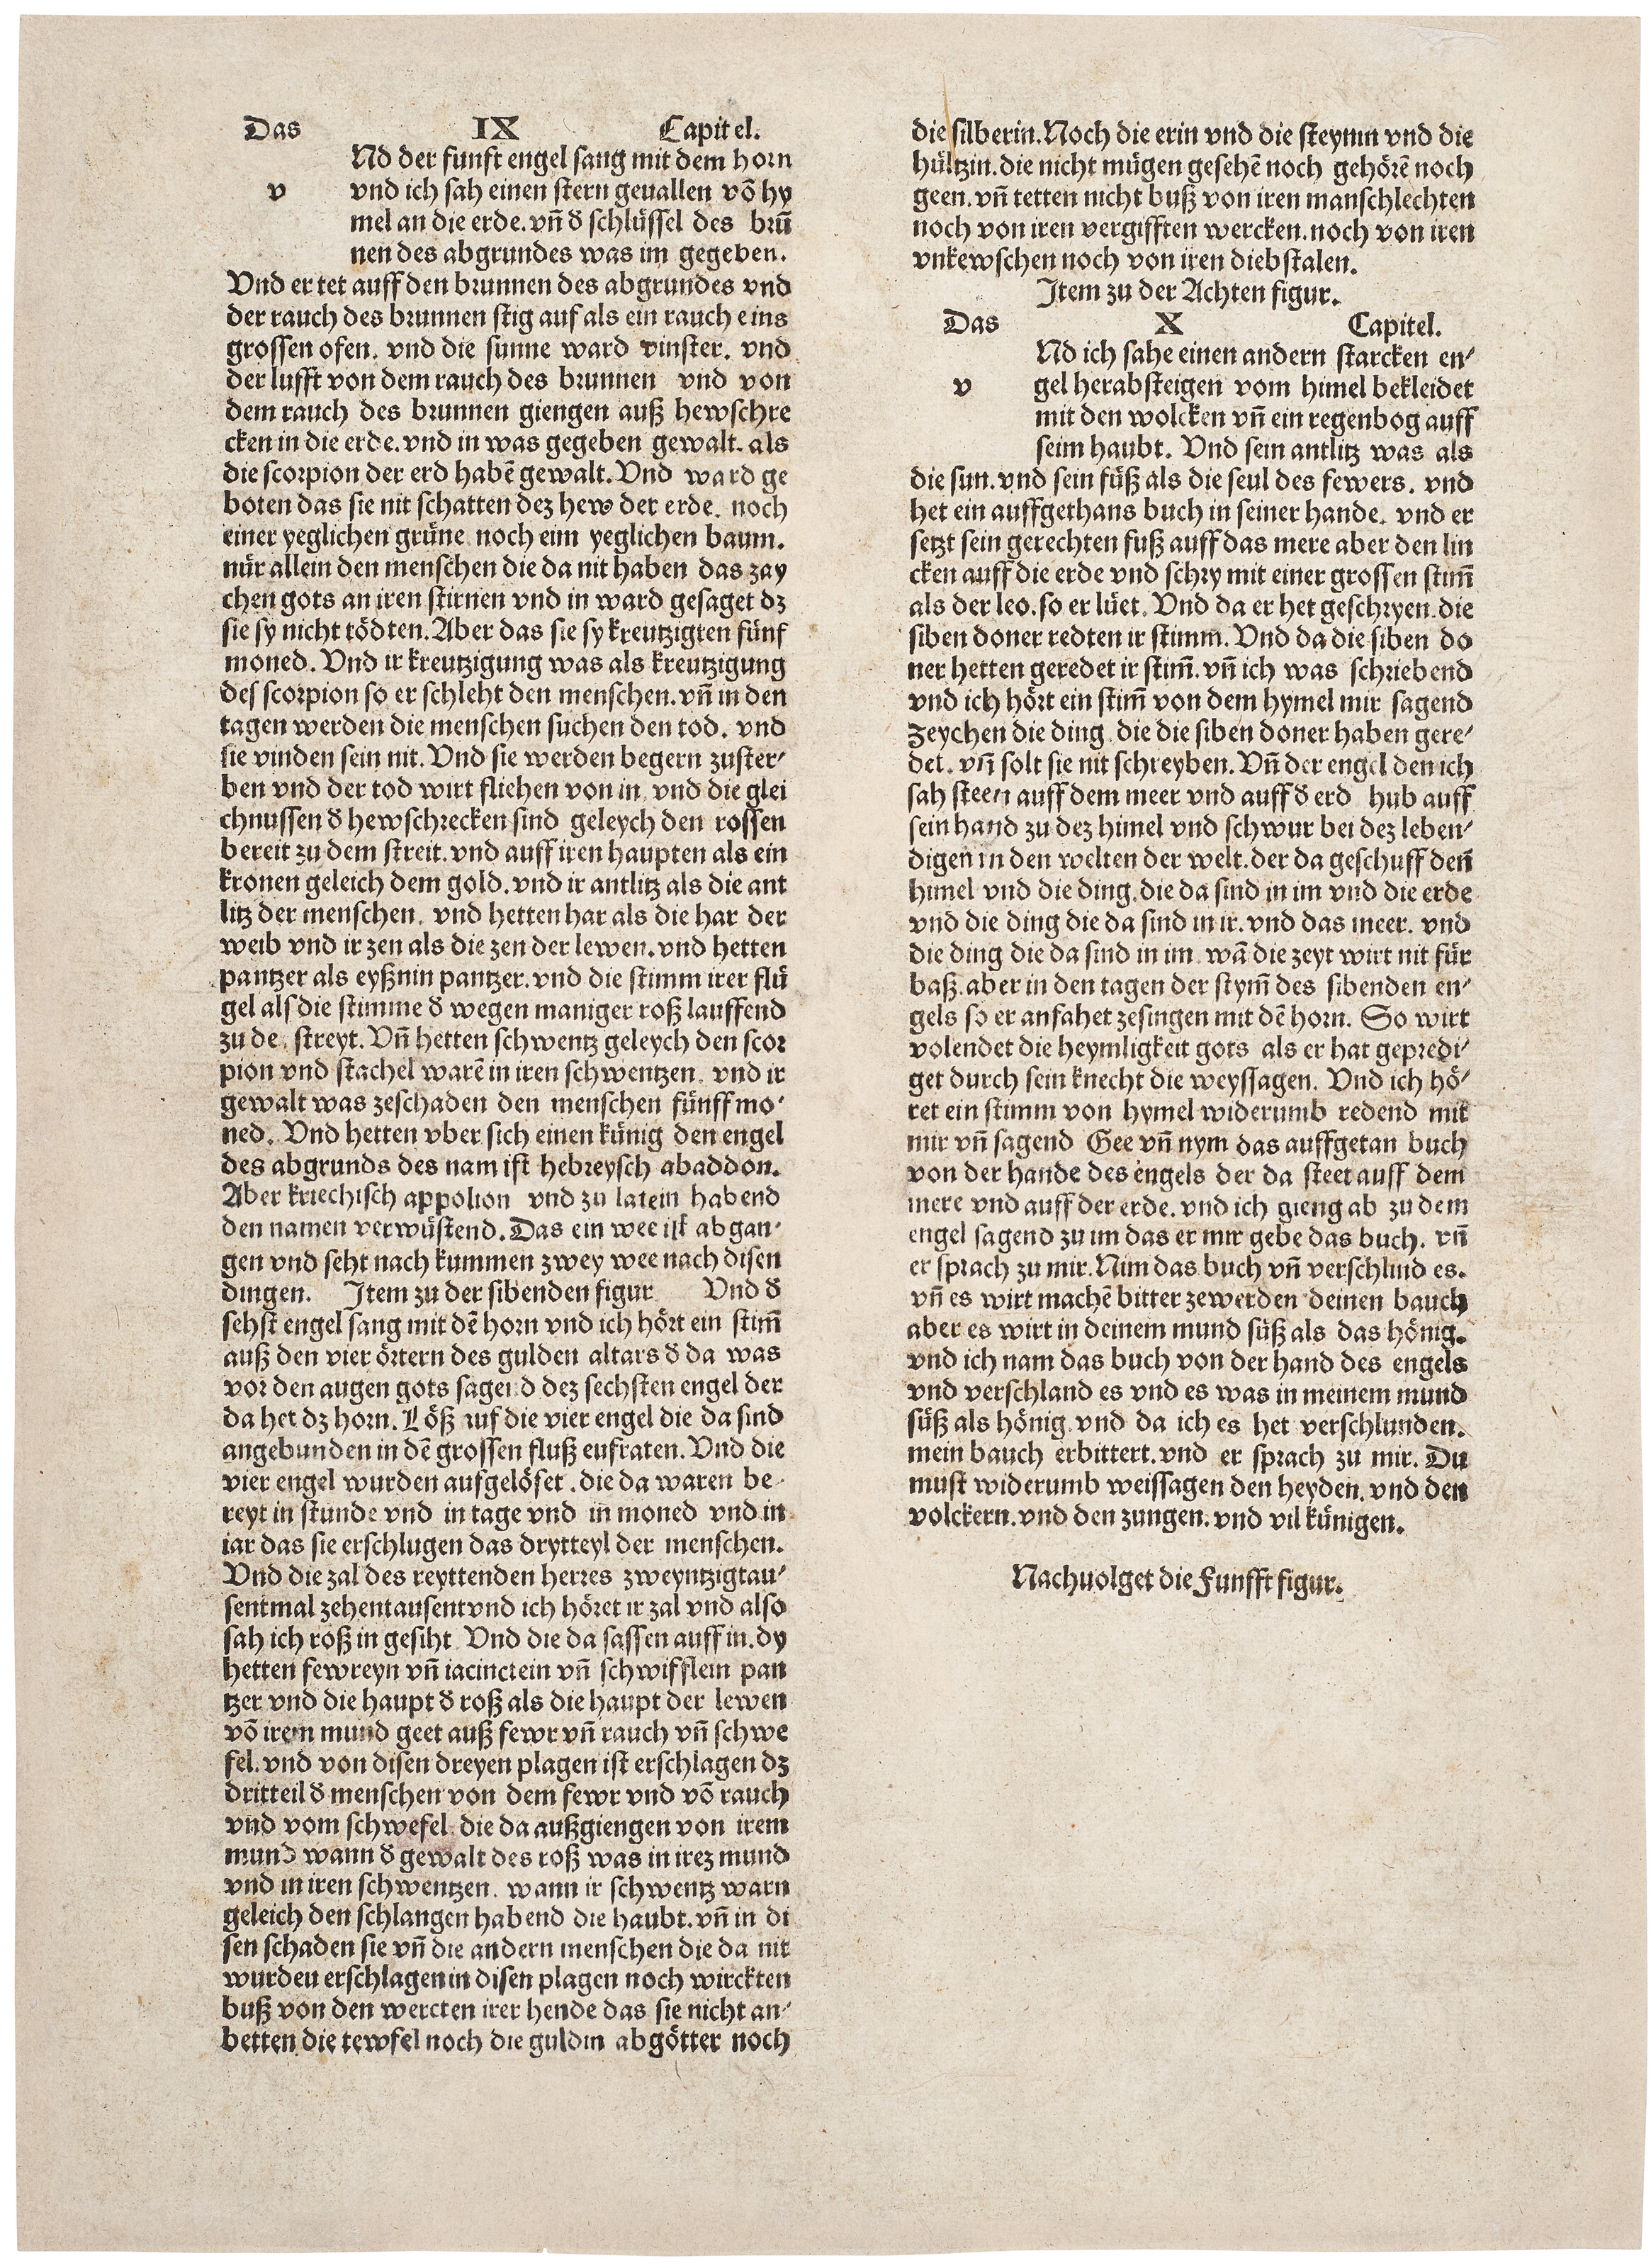 Das IX Capitel.
Nd der funft engel sang mit dem horn
v vnd ich sah einen stern geuallen vō hy
mel an die erde. vn̄ d̕ schlüssel des brū
nen des abgrundes was im gegeben.
Vnd er tet auff den brunnen des abgrundes vnd
der rauch des brunnen stig auf als ein rauch eins
grossen ofen. vnd die sunne ward vinster. vnd
der lufft von dem rauch des brunnen vnd von
dem rauch des brunnen giengen auß hewschre
cken in die erde. vnd in was gegeben gewalt. als
die scorpion der erd habē gewalt. Vnd ward ge
boten das sie nit schatten dez hew der erde. noch
einer yeglichen grüne noch eim yeglichen baum.
nür allein den menschen die da nit haben das zay
chen gots an iren stirnen vnd in ward gesaget dz
sie sy nicht tödten. Aber das sie sy kreutzigten fünf
moned. Vnd ir kreutzigung was als kreutzigung
des scorpion so er schleht den menschen. vn̄ in den
tagen werden die menschen suchen den tod. vnd
sie vinden sein nit. Vnd sie werden begern zuster⸗
ben vnd der tod wirt fliehen von in vnd die glei
chnussen d̕ hewschrecken sind geleych den rossen
bereit zu dem streit. vnd auff iren haupten als ein
kronen geleich dem gold. vnd ir antlitz als die ant
litz der menschen. vnd hetten har als die har der
weib vnd ir zen als die zen der lewen. vnd hetten
pantzer als eyßnin pantzer. vnd die stimm irer flü
gel als die stimme d̕ wegen maniger roß lauffend
zu de streyt. Vn̄ hetten schwentz geleych den scor
pion vnd stachel warē in iren schwentzen. vnd ir
gewalt was zeschaden den menschen fünff mo⸗
ned. Vnd hetten vber sich einen künig den engel
des abgrunds des nam ist hebreysch abaddon.
Aber kriechisch appolion vnd zu latein habend
den namen verwüstend. Das ein wee ist abgan⸗
gen vnd seht nach kummen zwey wee nach disen
dingen. Item zu der sibenden figur Vnd d̕
sehst engel sang mit dē horn vnd ich hört ein stim̄
auß den vier örtern des gulden altars d̕ da was
vor den augen gots sagend dez sechsten engel der
da het dz horn. Löß uf die vier engel die da sind
angebunden in dē grossen fluß eufraten. Vnd die
vier engel wurden aufgelöset. die da waren be⸗
reyt in stunde vnd in tage vnd in moned vnd in
iar das sie erschlugen das drytteyl der menschen.
Vnd die zal des reyttenden herres zweyntzigtau⸗
sentmal zehentausent vnd ich höret ir zal vnd also
sah ich roß in gesiht Vnd die da sassen auff in. dy
hetten fewreyn vn̄ iacinctein vn̄ schwifflein pan
tzer vnd die haupt d̕ roß als die haupt der lewen
vō irem mund geet auß fewr vn̄ rauch vn̄ schwe
fel. vnd von disen dreyen plagen ist erschlagen dz
dritteil d̕ menschen von dem fewr vnd vō rauch
vnd vom schwefel die da außgiengen von irem
mund wann d̕ gewalt des roß was in irez mund
vnd in iren schwentzen. wann ir schwentz warn
geleich den schlangen habend die haubt. vn̄ in di
sen schaden sie vn̄ die andern menschen die da nit
wurden erschlagen in disen plagen noch wirckten
buß von den wercten irer hende das sie nicht an⸗
betten die tewfel noch die guldin abgötter noch
die silberin. Noch die erin vnd die steynin vnd die
hültzin. die nicht mügen gesehē noch gehörē noch
geen. vn̄ tetten nicht buß von iren manschlechten
noch von iren vergifften wercken. noch von iren
vnkewschen noch von iren diebstalen.
Item zu der Achten figur.
Das X Capitel.
Nd ich sahe einen andern starcken en⸗
v gel herabsteigen vom himel bekleidet
mit den wolcken vn̄ ein regenbog auff
seim haubt. Vnd sein antlitz was als
die sun. vnd sein füß als die seul des fewers. vnd
het ein auffgethans buch in seiner hande. vnd er
setzt sein gerechten fuß auff das mere aber den lin
cken auff die erde vnd schry mit einer grossen stim̄
als der leo. so er lüet. Vnd da er het geschryen. die
siben doner redten ir stimm. Vnd da die siben do
ner hetten geredet ir stim̄. vn̄ ich was schriebend
vnd ich hört ein stim̄ von dem hymel mir sagend
Zeychen die ding. die die siben doner haben gere⸗
det. vn̄ solt sie nit schreyben. Vn̄ der engel den ich
sah steen auff dem meer vnd auff d̕ erd hub auff
sein hand zu dez himel vnd schwur bei dez leben⸗
digen in den welten der welt. der da geschuff den̄
himel vnd die ding. die da sind in im vnd die erde
vnd die ding die da sind in ir. vnd das meer. vnd
die ding die da sind in im. wā die zeyt wirt nit für
baß. aber in den tagen der stym̄ des sibenden en⸗
gels so er anfahet zesingen mit dē horn. So wirt
volendet die heymligkeit gots als er hat gepredi⸗
get durch sein knecht die weyssagen. Vnd ich hö⸗
ret ein stimm von hymel widerumb redend mit
mir vn̄ sagend Gee vn̄ nym das auffgetan buch
von der hande des engels der da steet auff dem
mere vnd auff der erde. vnd ich gieng ab zu dem
engel sagend zu im das er mir gebe das buch. vn̄
er sprach zu mir. Nim das buch vn̄ verschlind es.
vn̄ es wirt machē bitter zewerden deinen bauch
aber es wirt in deinem mund süß als das hönig.
vnd ich nam das buch von der hand des engels
vnd verschland es vnd es was in meinem mund
süß als hönig. vnd da ich es het verschlunden.
mein bauch erbittert. vnd er sprach zu mir. Du
must widerumb weissagen den heyden. vnd den
volckern. vnd den zungen. vnd vil künigen.
Nachuolget die Funfft figur.